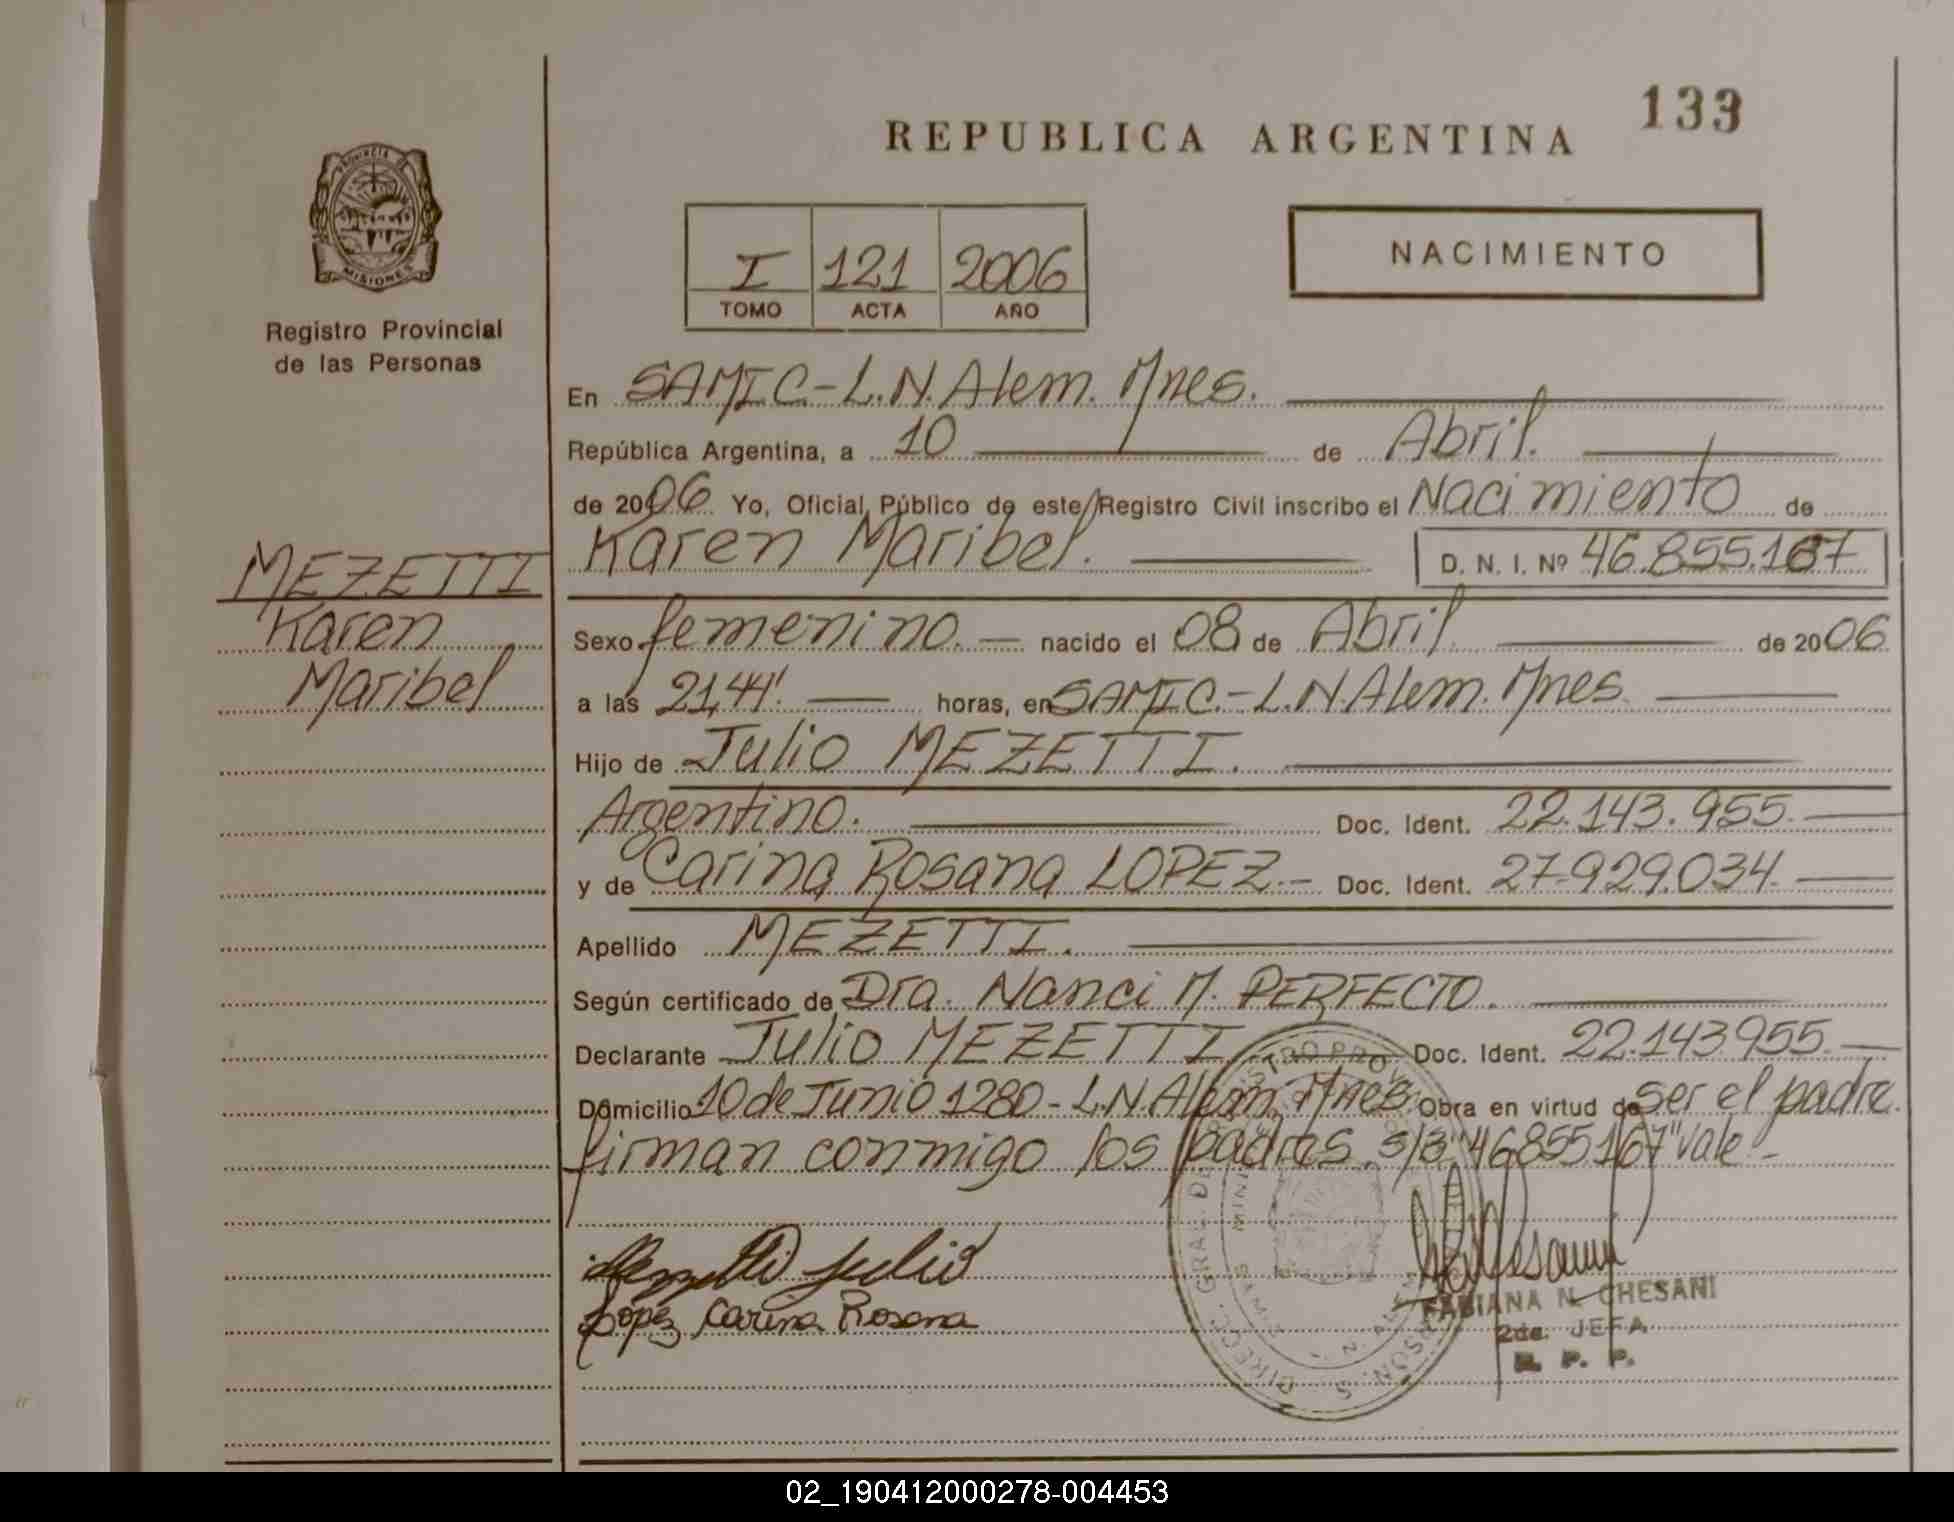 133
REPUBLICA ARGENTINA
PROVINCIA DE
MISIONES
Registro Provincial
de las Personas
I 121 2006
TOMO ACTA AÑO
NACIMIENTO
En SAMIC-L.N.Alem. Mnes.
República Argentina, a 10 de Abril.
de 2006 Yo, Oficial Público de este Registro Civil inscribo el Nacimiento de
Karen Maribel. D. N. I. Nº 46.855.167
MEZETTI
Karen
Maribel
Sexo femenino.- nacido el 08 de Abril. de 2006
a las 21,44'. horas, en SAMIC.-L.N.Alem. Mnes.
Hijo de Julio MEZETTI.
Argentino. Doc. Ident. 22.143.955.
y de Carina Rosana LOPEZ.- Doc. Ident. 27.929.034.
Apellido MEZETTI.
Según certificado de Dra. Nanci M. PERFECTO.
Declarante Julio MEZETTI Doc. Ident. 22.143.955.
Domicilio 10 de Junio 1280-L.N.Alem. Mnes. Obra en virtud de ser el padre.
firman conmigo los padres. s/r "46855167" vale-
Mezetti Julio
Lopez Carina Rosana
FABIANA N. CHESANI
2da. JEFA
R. P. P.
02_190412000278-004453